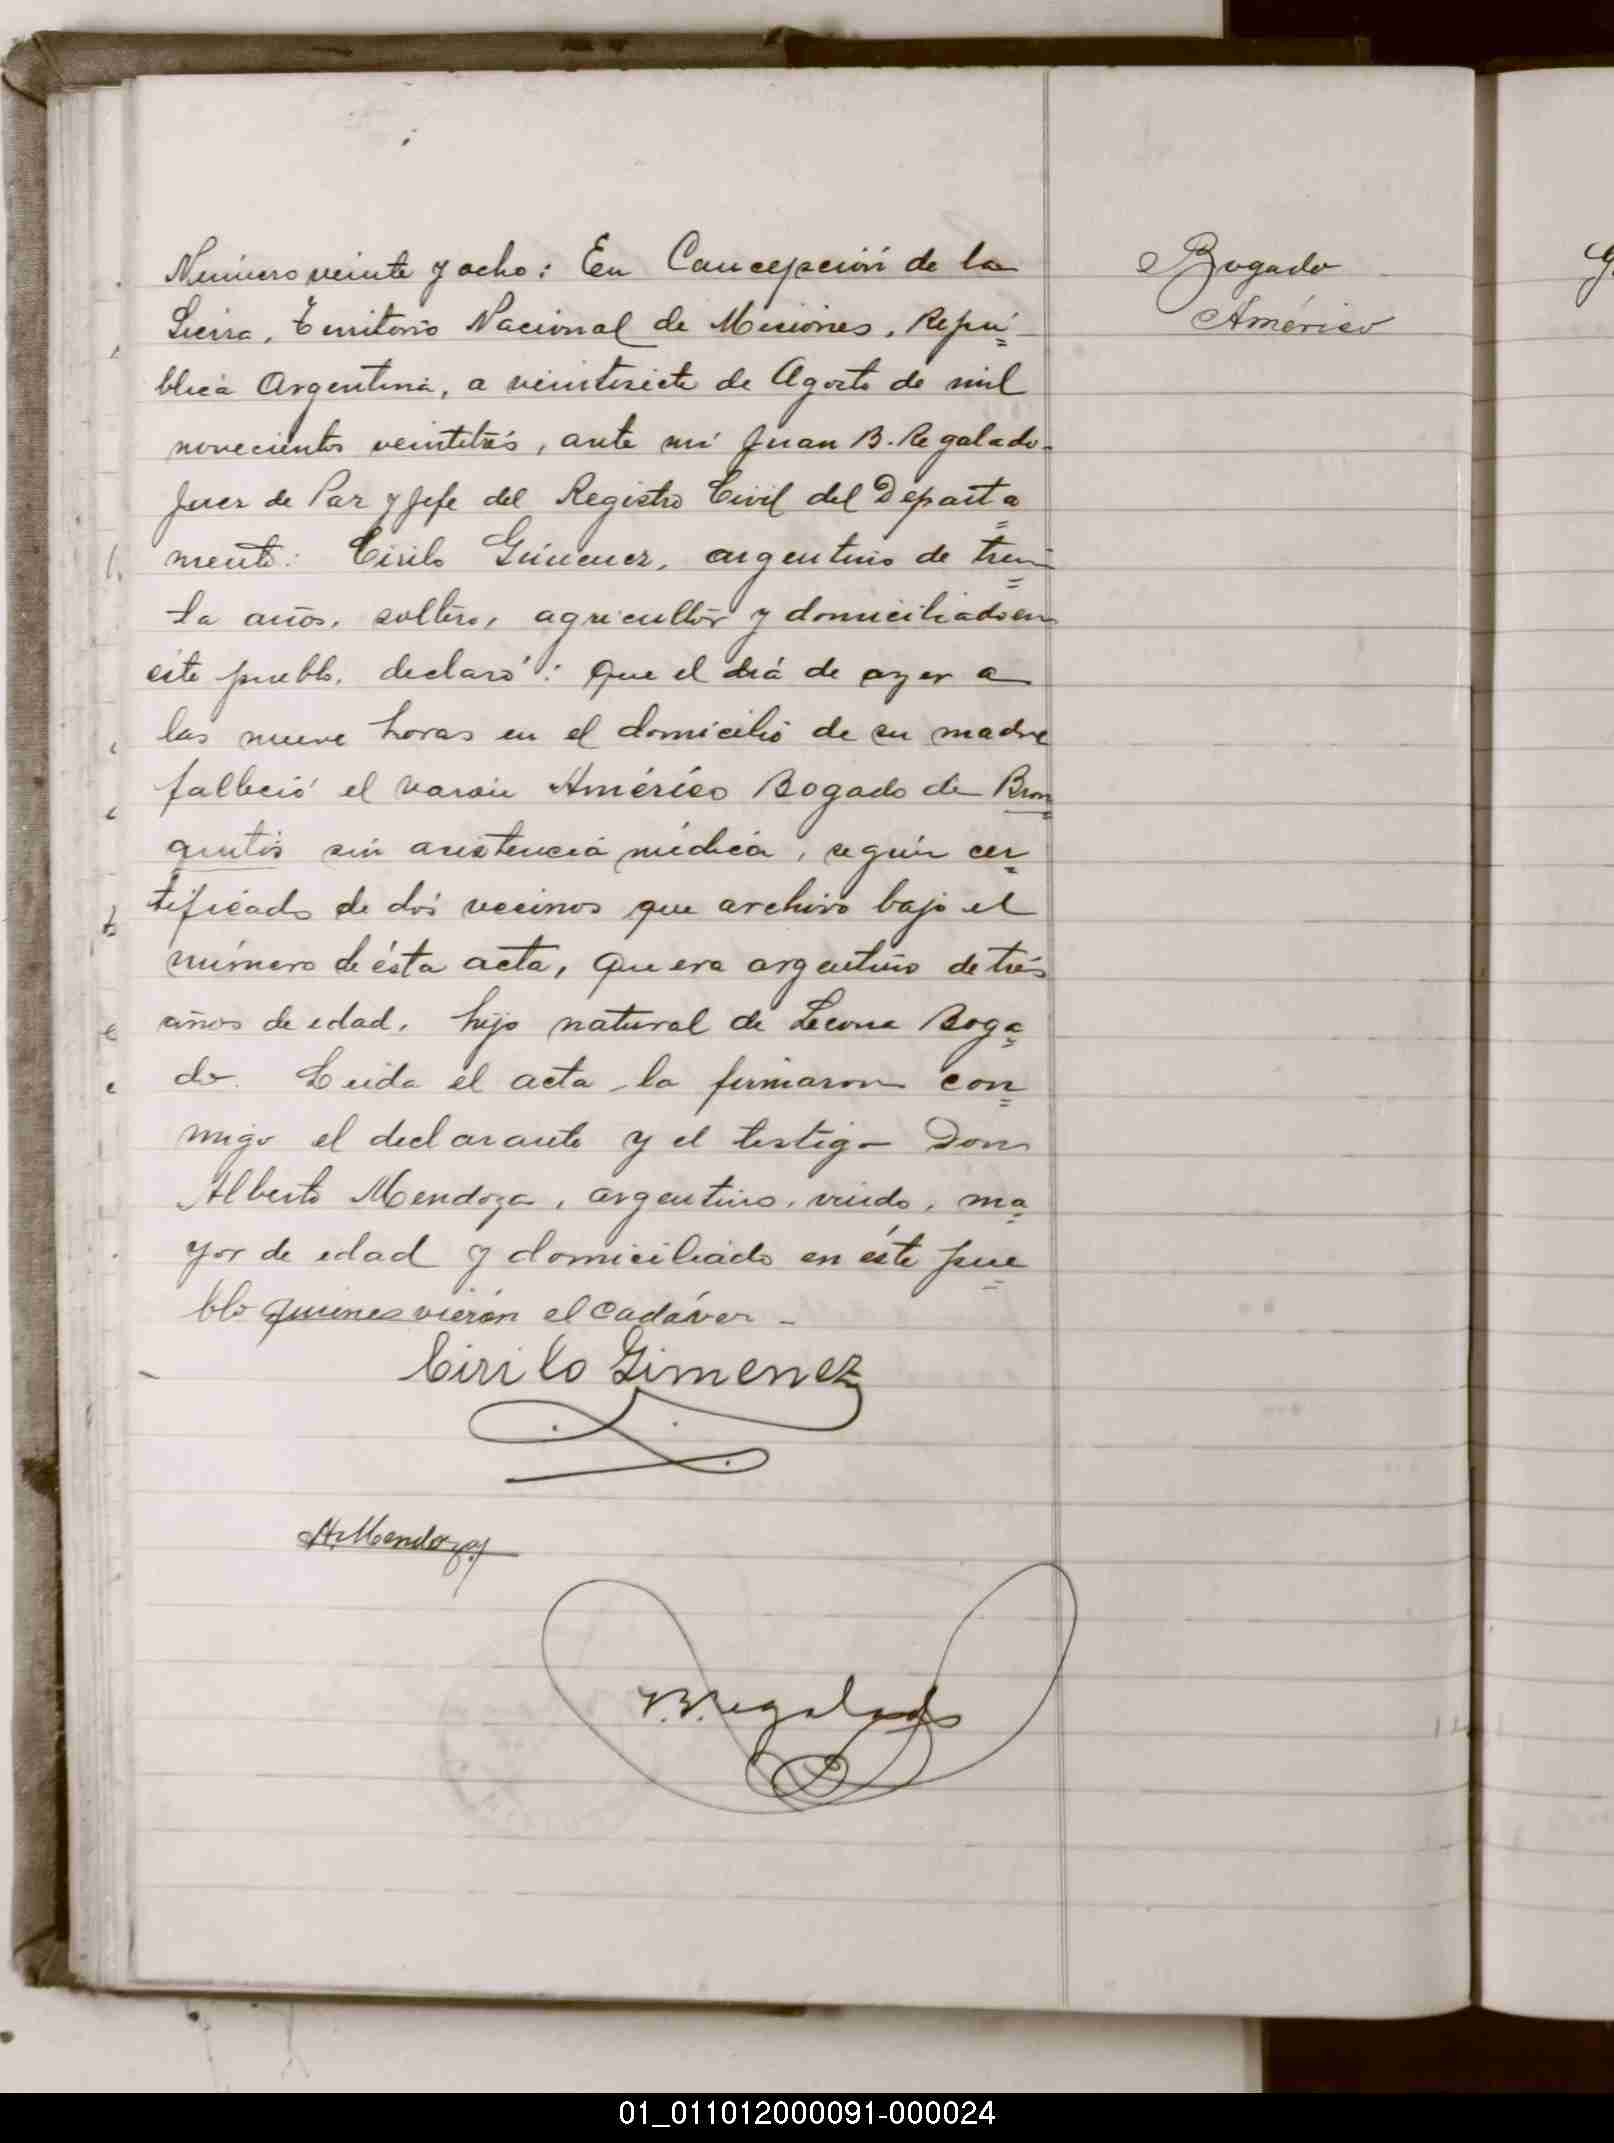 Número veinte y ocho: En Concepción de la
Sierra, Territorio Nacional de Misiones, Repú=
blica Argentina, a veintisiete de Agosto de mil
novecientos veintitrés, ante mí Juan B. Regalado
Juez de Paz y Jefe del Registro Civil del Departa=
mento: Cirilo Giménez, argentino de trein=
ta años, soltero, agricultor y domiciliado en
éste pueblo, declaró: Que el día de ayer a
las nueve horas en el domicilio de su madre
falleció el varón Américo Bogado de Bron=
quitis sin asistencia médica, según cer=
tificado de dos vecinos que archivo bajo el
número de ésta acta, Que era argentino de tres
años de edad, hijo natural de Boga=
do. Leida el acta la firmaron con=
migo el declarante y el testigo Don
Alberto Mendoza, argentino, viudo, ma=
yor de edad y domiciliado en éste pue=
blo quienes vierón el cadáver -
Cirilo Gimenez
A. Mendoza
J. B. Regalado
Bogado
Américo
01_011012000091-000024